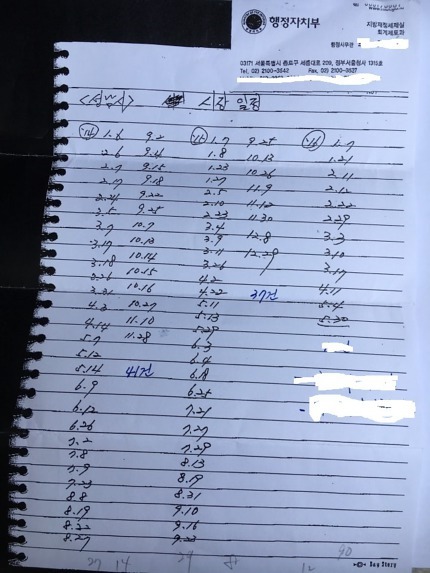 행정자치부
지방재정세제실
회계제도과
행정사무관
03171 서울특별시 종로구 세종대로 209, 정부서울청사 1315호
Tel. 02) 2100-3542 Fax. 02) 2100-3527
<성남시> 시장 일정
'14 1.6 9.2 '15 1.7 9.25 '16 1.7
2.6 9.4 1.8 10.13 1.21
2.7 9.15 1.23 10.26 2.11
2.17 9.18 1.27 11.9 2.12
2.24 9.22 2.5 11.12 2.22
3.5 9.25 2.10 11.30 2.29
3.7 10.7 2.23 12.8 3.3
3.17 10.13 3.4 12.29 3.10
3.18 10.14 3.9 3.17
3.26 10.15 3.11 4.11
3.31 10.16 3.26 5.4
4.3 10.27 4.2 37건 5.30
4.14 11.10 4.22
5.7 11.28 5.11
5.12 5.13
5.14 41건 5.29
6.9 6.3
6.12 6.4
6.26 6.18
7.2 6.25
7.8 7.21
7.9 7.27
7.23 7.29
8.8 8.13
8.19 8.19
8.22 8.31
8.27 9.10
9.16
9.23
27 14 29 8 12 90